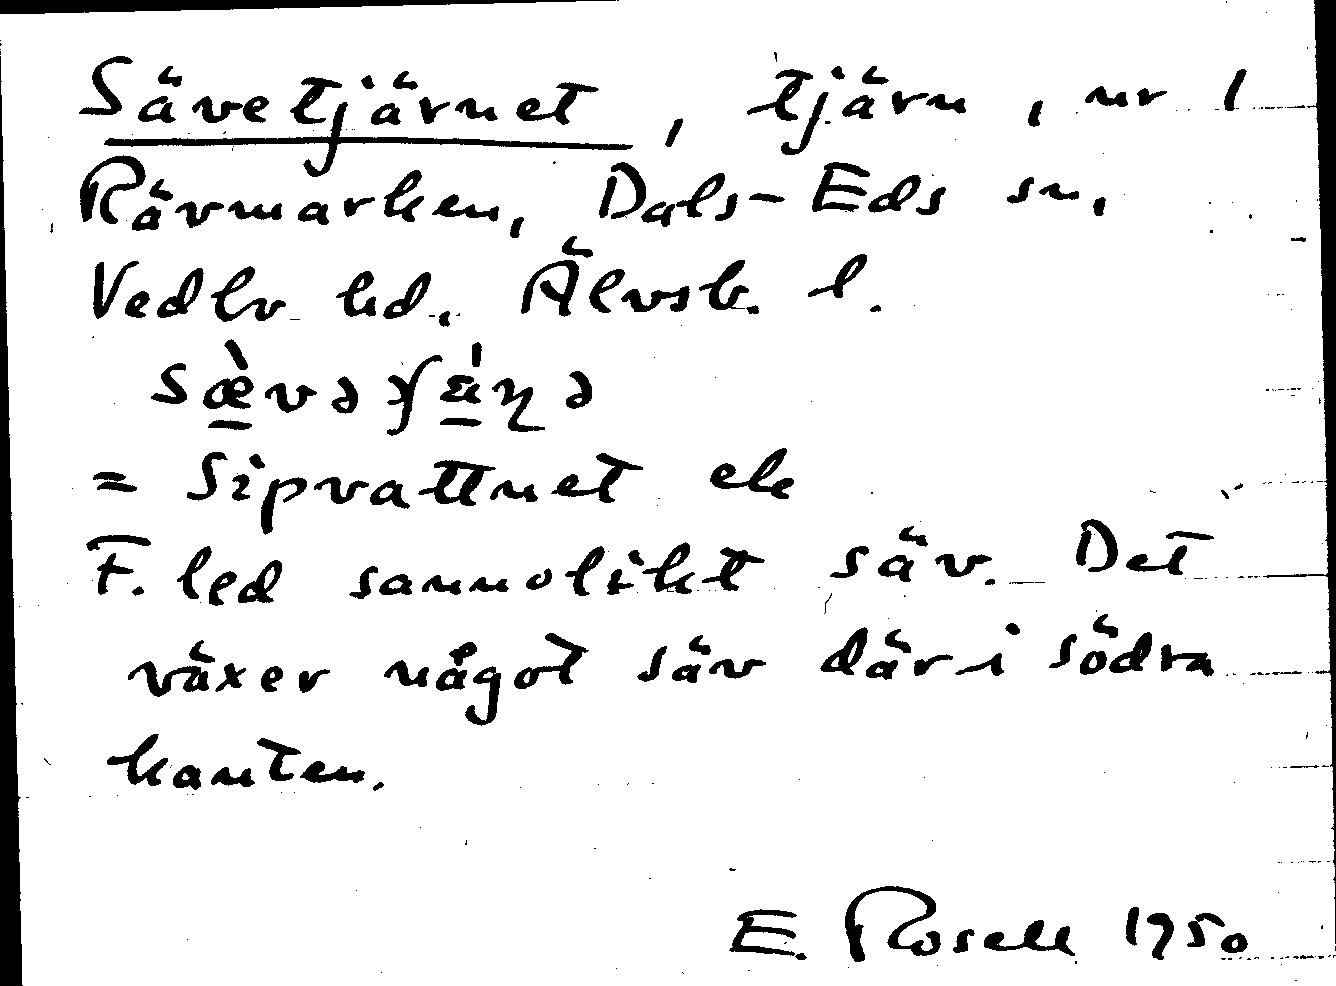 Sävetjärnet, tjärn, nr 1
Rävmarken, Dals-Eds sn,
Vedbo hd, Älvsb. l.
sæ̀və
= Sipvattnet ek
F. led sannolikt säv. Det
växer något säv där i södra
kanten.
E. Rosell 1950